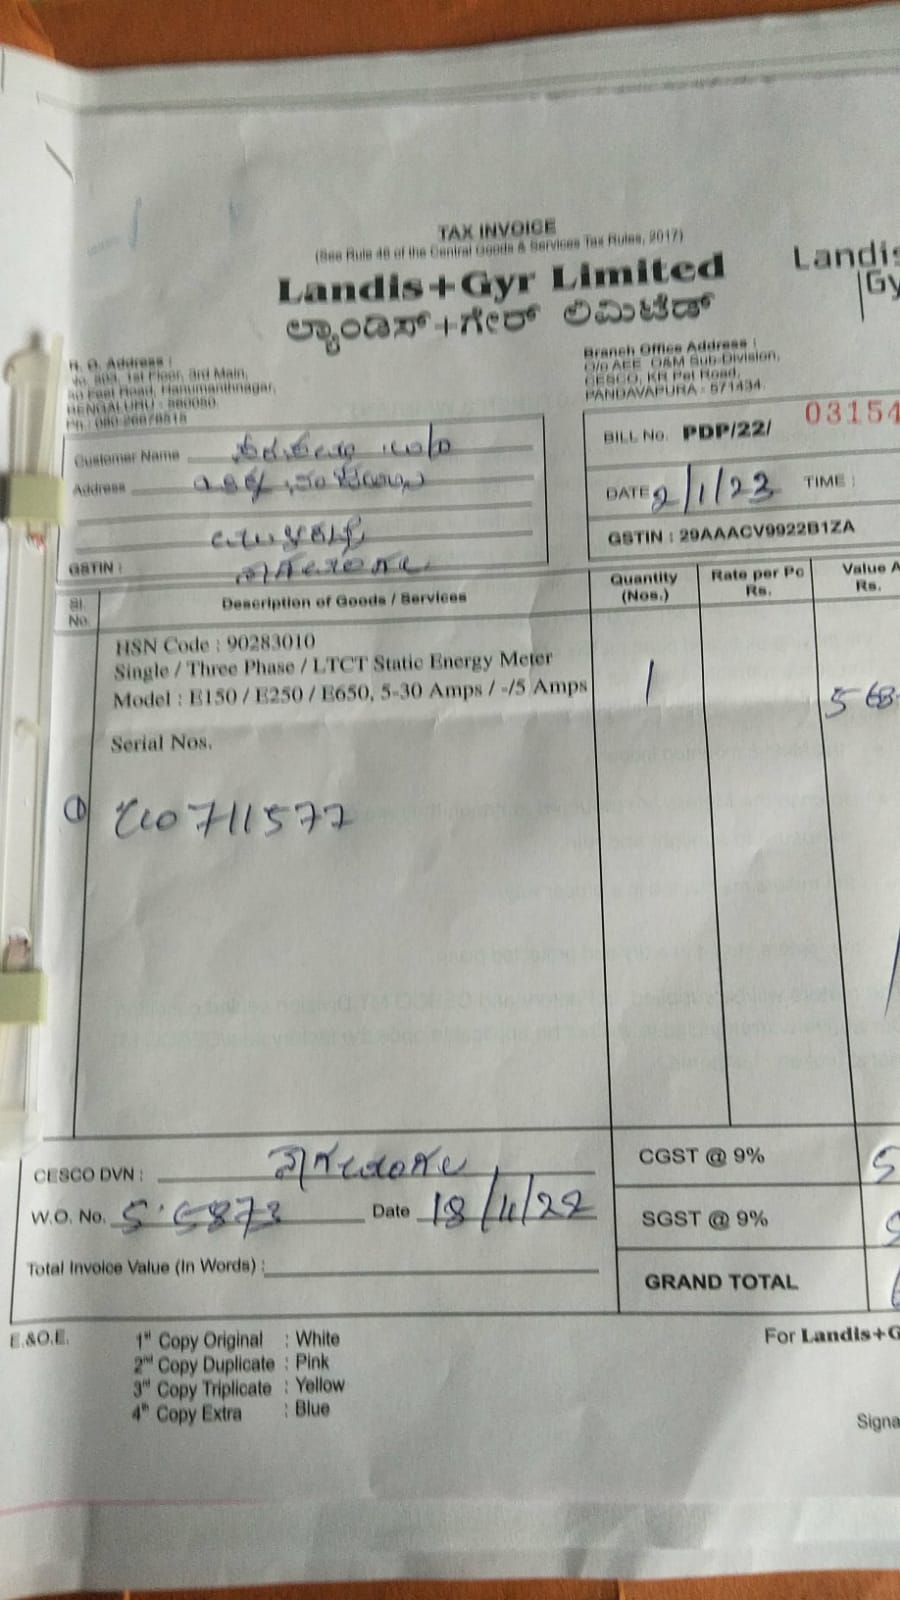 TAX INVOICE
(See Rule 46 of the Central Goods & Services Tax Rules, 2017)
Landis+Gyr Limited
ಲ್ಯಾಂಡಿಸ್+ಗೇರ್ ಲಿಮಿಟೆಡ್
Landis
Gy
Address :
1st Floor, 3rd Main,
Road, Hanumanthnagar,
BENGALURU - 560050.
Branch Office Address :
O/o AEE O&M Sub-Division,
CESCO, KR Pet Road,
PANDAVAPURA - 571434.
Customer Name
Address
GSTIN :
BILL No. PDP/22/ 03154
DATE 2/1/23 TIME :
GSTIN : 29AAACV9922B1ZA
Sl. No. Description of Goods / Services Quantity (Nos.) Rate per Pc Rs. Value A Rs.
HSN Code : 90283010
Single / Three Phase / LTCT Static Energy Meter
Model : E150 / E250 / E650, 5-30 Amps / -/5 Amps 1 568
Serial Nos.
① 0711577
CESCO DVN :
W.O. No. Date 18/11/22
Total Invoice Value (In Words) :
CGST @ 9% 5
SGST @ 9% 5
GRAND TOTAL
E.&O.E.
1st Copy Original : White
2nd Copy Duplicate : Pink
3rd Copy Triplicate : Yellow
4th Copy Extra : Blue
For Landis+G
Signa